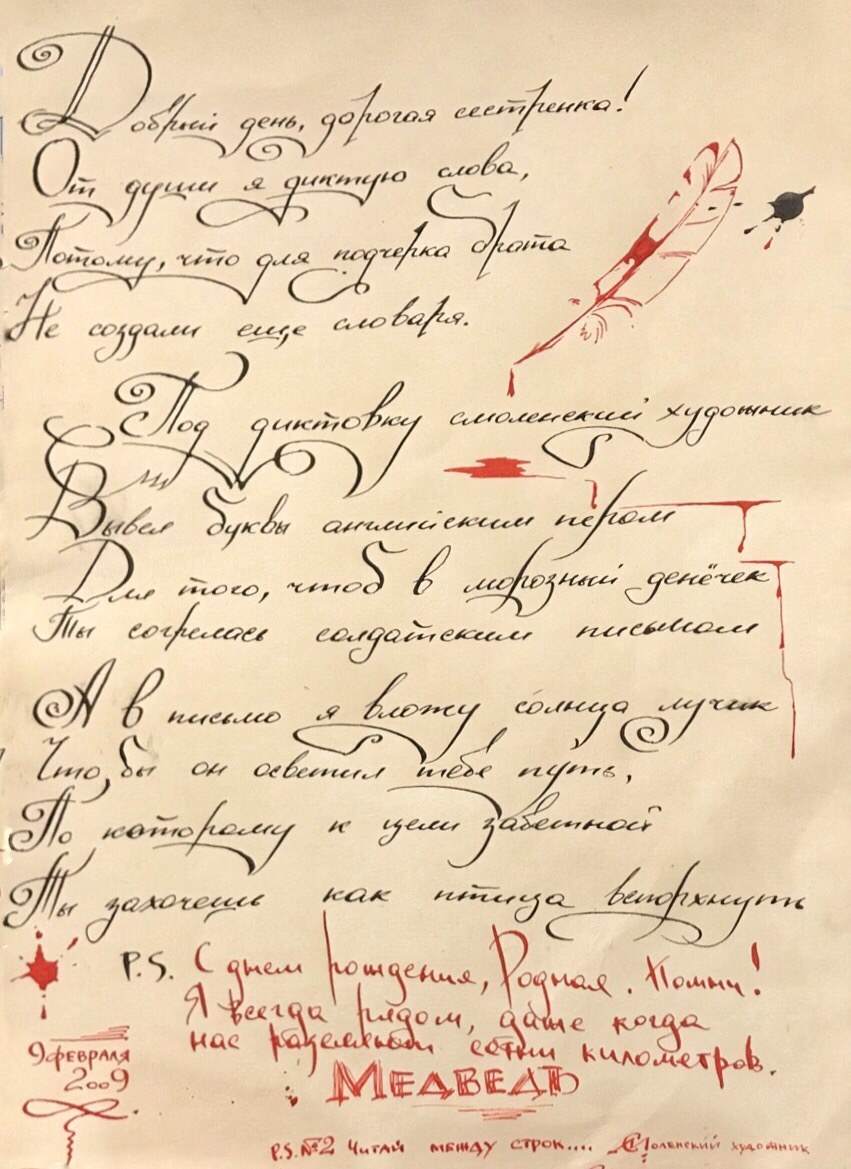 Добрый день, дорогая сестренка!
От души я диктую слова,
Потому, что для подчерка брата
Не создали еще словаря.
Под диктовку смоленский художник
Вывел буквы английским пером
Для того, чтоб в морозный денёчек
Ты согрелась солдатским письмом
А в письмо я вложу солнца лучик
Что,бы он осветил тебе путь,
По которому к цели заветной
Ты захочешь как птица вспорхнуть
P.S. С днем рождения, Родная. Помни!
Я всегда рядом, даже когда
нас разделяют сотни километров.
9 февраля
2009
Медведь
P.S. №2 Читай между строк.... Смоленский художник